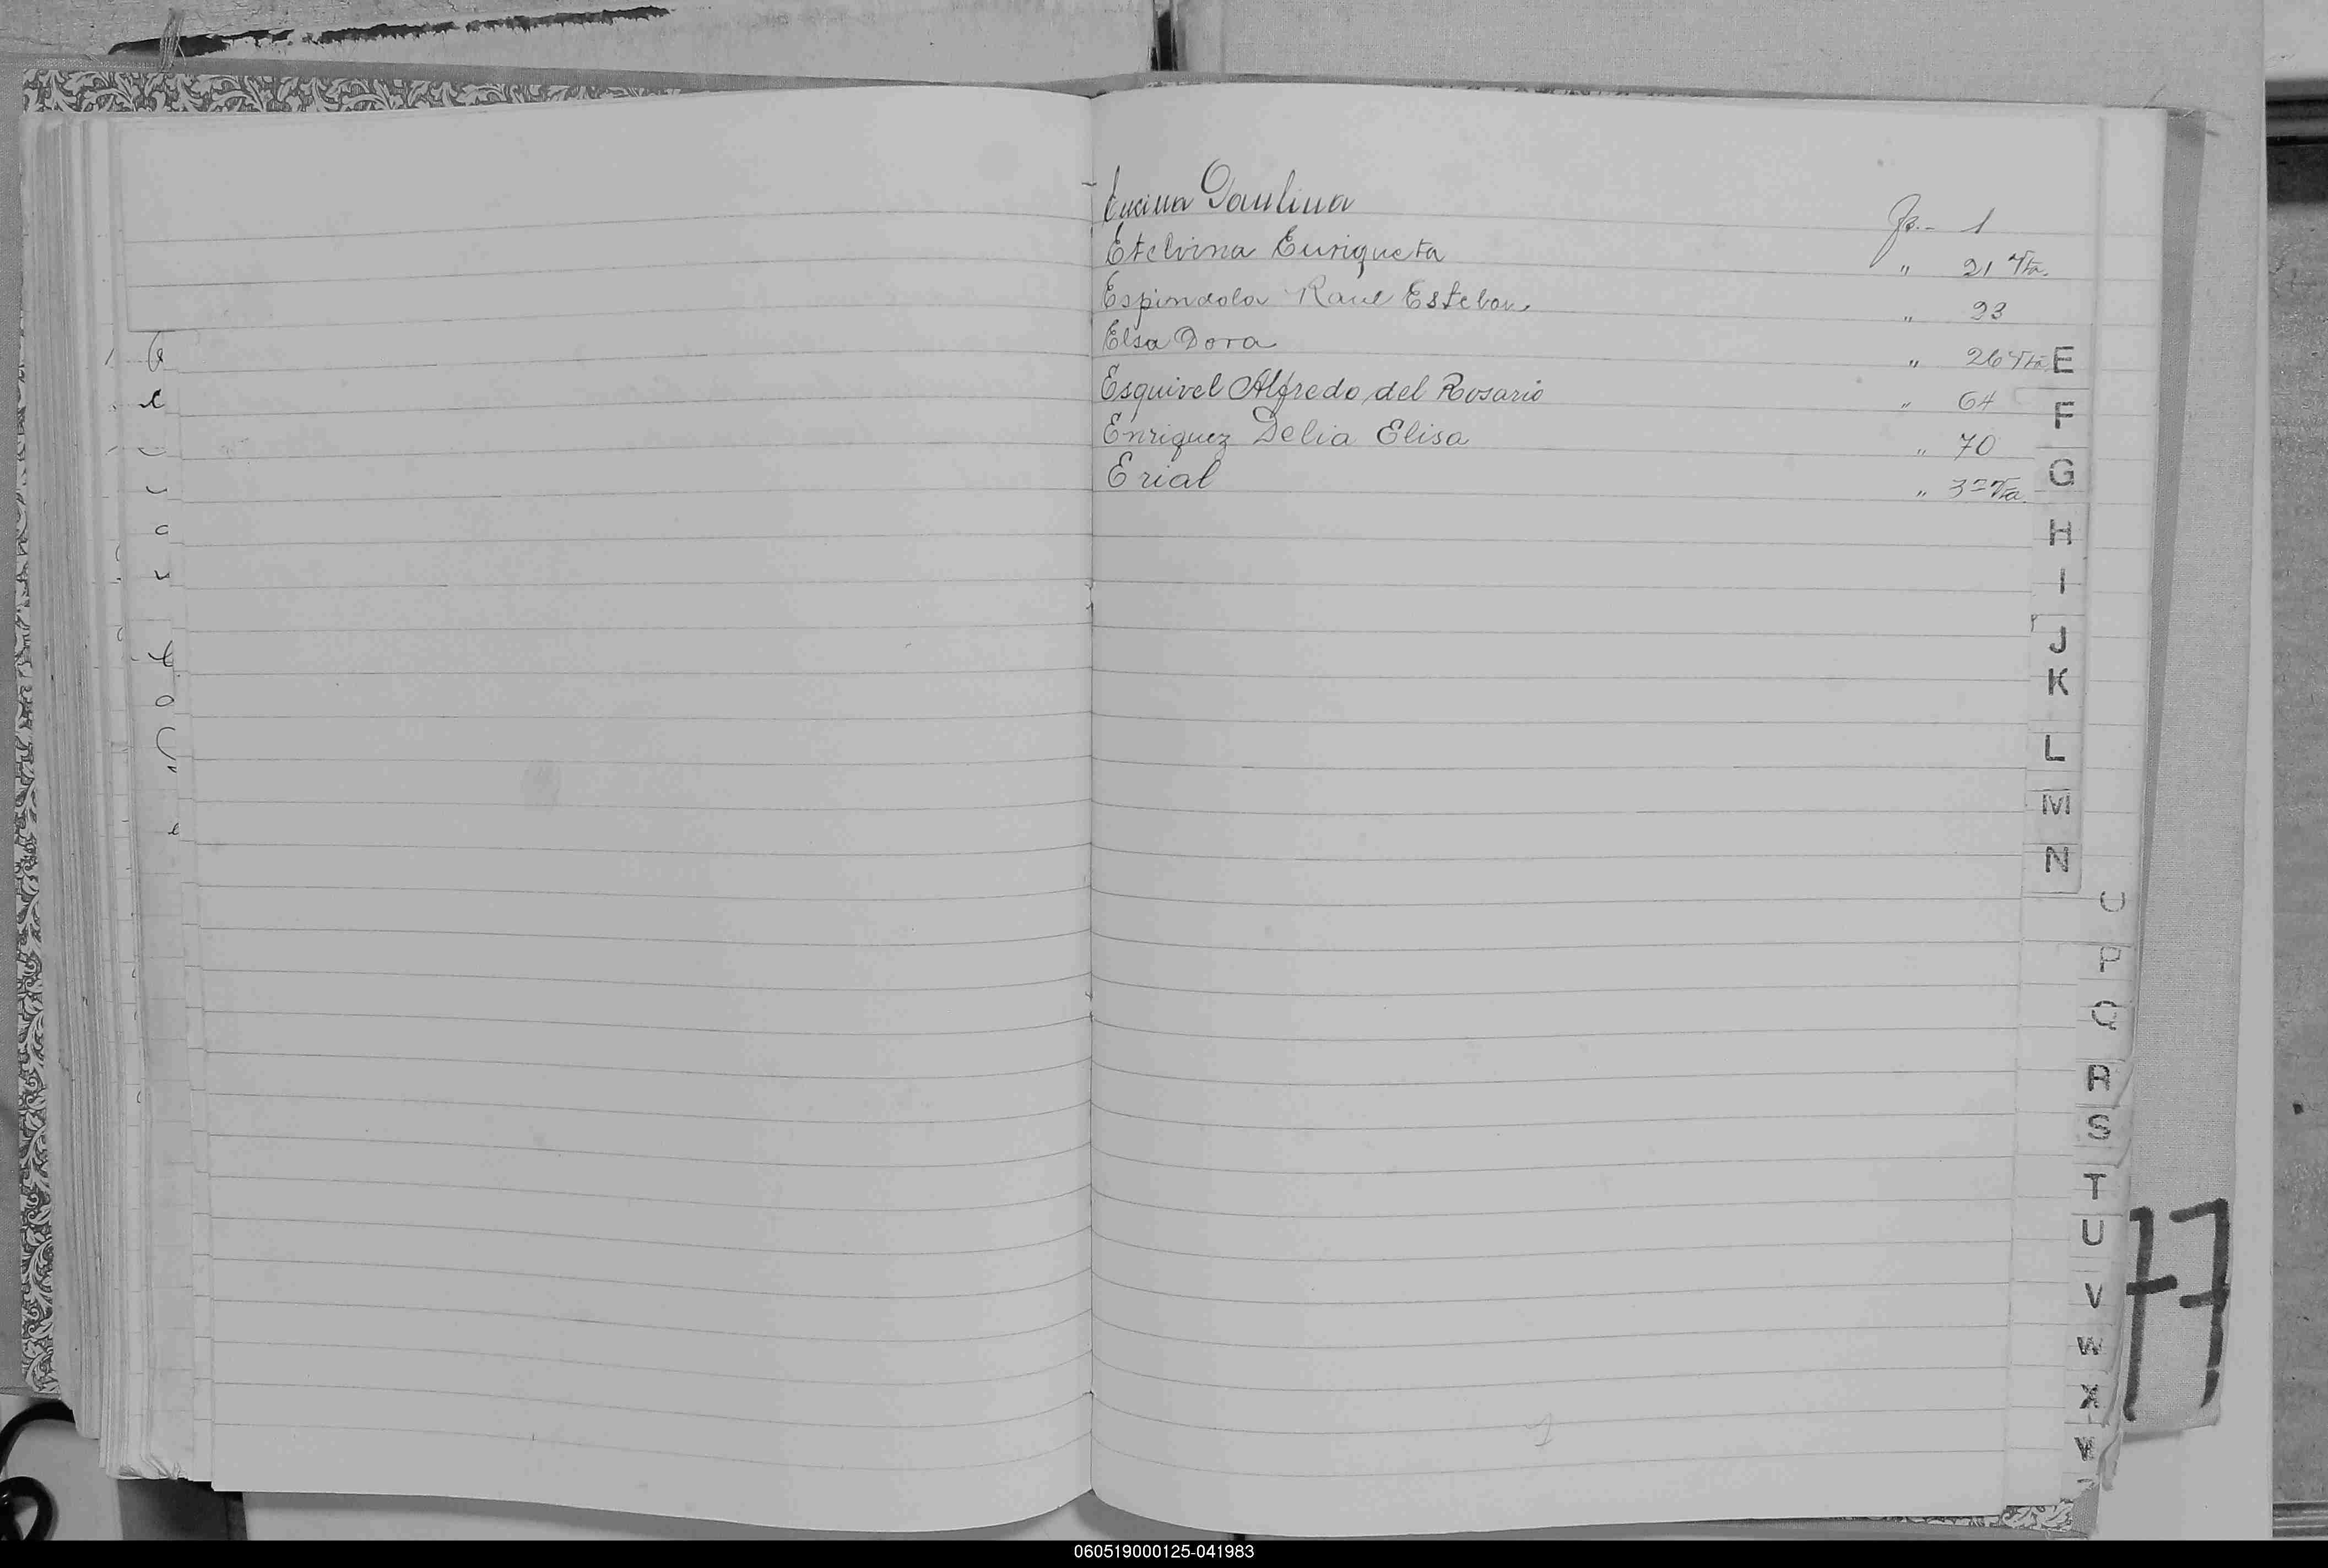 Encina Paulina Fs.- 1
Etelvina Enriqueta " 21 Vta.
Espindola Raul Esteban " 23
Elsa Dora " 26 Vta
Esquivel Alfredo del Rosario " 64
Enriquez Delia Elisa " 70
Erial " Vta.
E
F
G
H
I
J
K
L
M
N
O
P
Q
R
S
T
U
V
W
X
Y
77
060519000125-041983